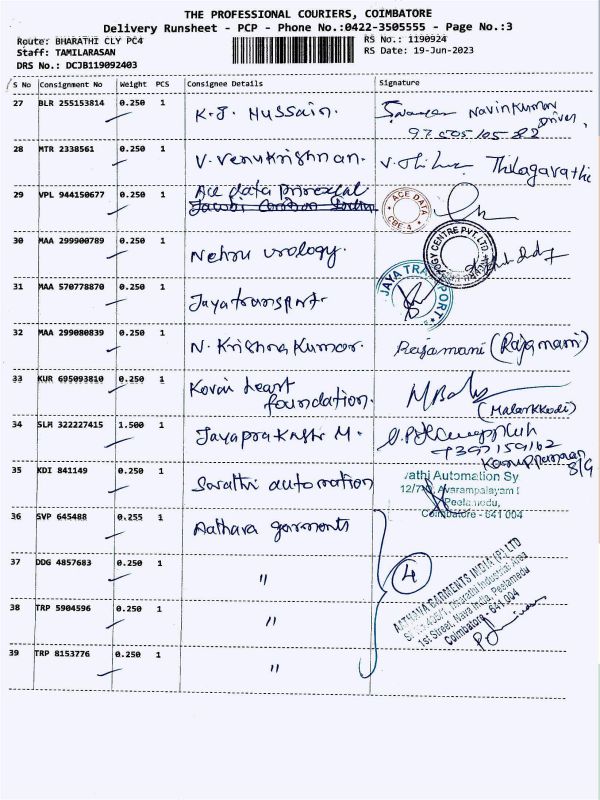 THE PROFESSIONAL COURIERS, COIMBATORE
Delivery Runsheet - PCP - Phone No.:0422-3505555 - Page No.:3
Route: BHARATHI CLY PC4 RS No.: 1190924
Staff: TAMILARASAN RS Date: 19-Jun-2023
DRS No.: DCJB119092403
S No Consignment No Weight PCS Consignee Details Signature
27 BLR 255153814 0.250 1 K.J. Hussain. Navinkumar
Driver
28 MTR 2338561 0.250 1 V. Venukrishnan. Thilagavathi
29 VPL 944150677 0.250 1 Ace data
ACE DATA
CBE 4
30 MAA 299900789 0.250 1 Nehru urology.
31 MAA 570778870 0.250 1 Jayatransport.
JAYA TRANSPORT
32 MAA 299080839 0.250 1 N. Krishna Kumar. Rajamani (Rajamani)
33 KUR 695093810 0.250 1 Kovai heart
foundation.
(Malarkkodi)
34 SLM 322227415 1.500 1 Jayaprakash M.
35 KDI 841149 0.250 1 Sarathi automation
athi Automation Sy
Avarampalayam
Peelamedu,
Coimbatore - 641 004
36 SVP 645488 0.255 1 Aathava garments
37 DDG 4857683 0.250 1 "
4
38 TRP 5904596 0.250 1 "
AATHAVA GARMENTS INDIA (P) LTD
Bharathi Industrial Area
1st Street, Nava India, Peelamedu
Coimbatore - 641 004
39 TRP 8153776 0.250 1 "